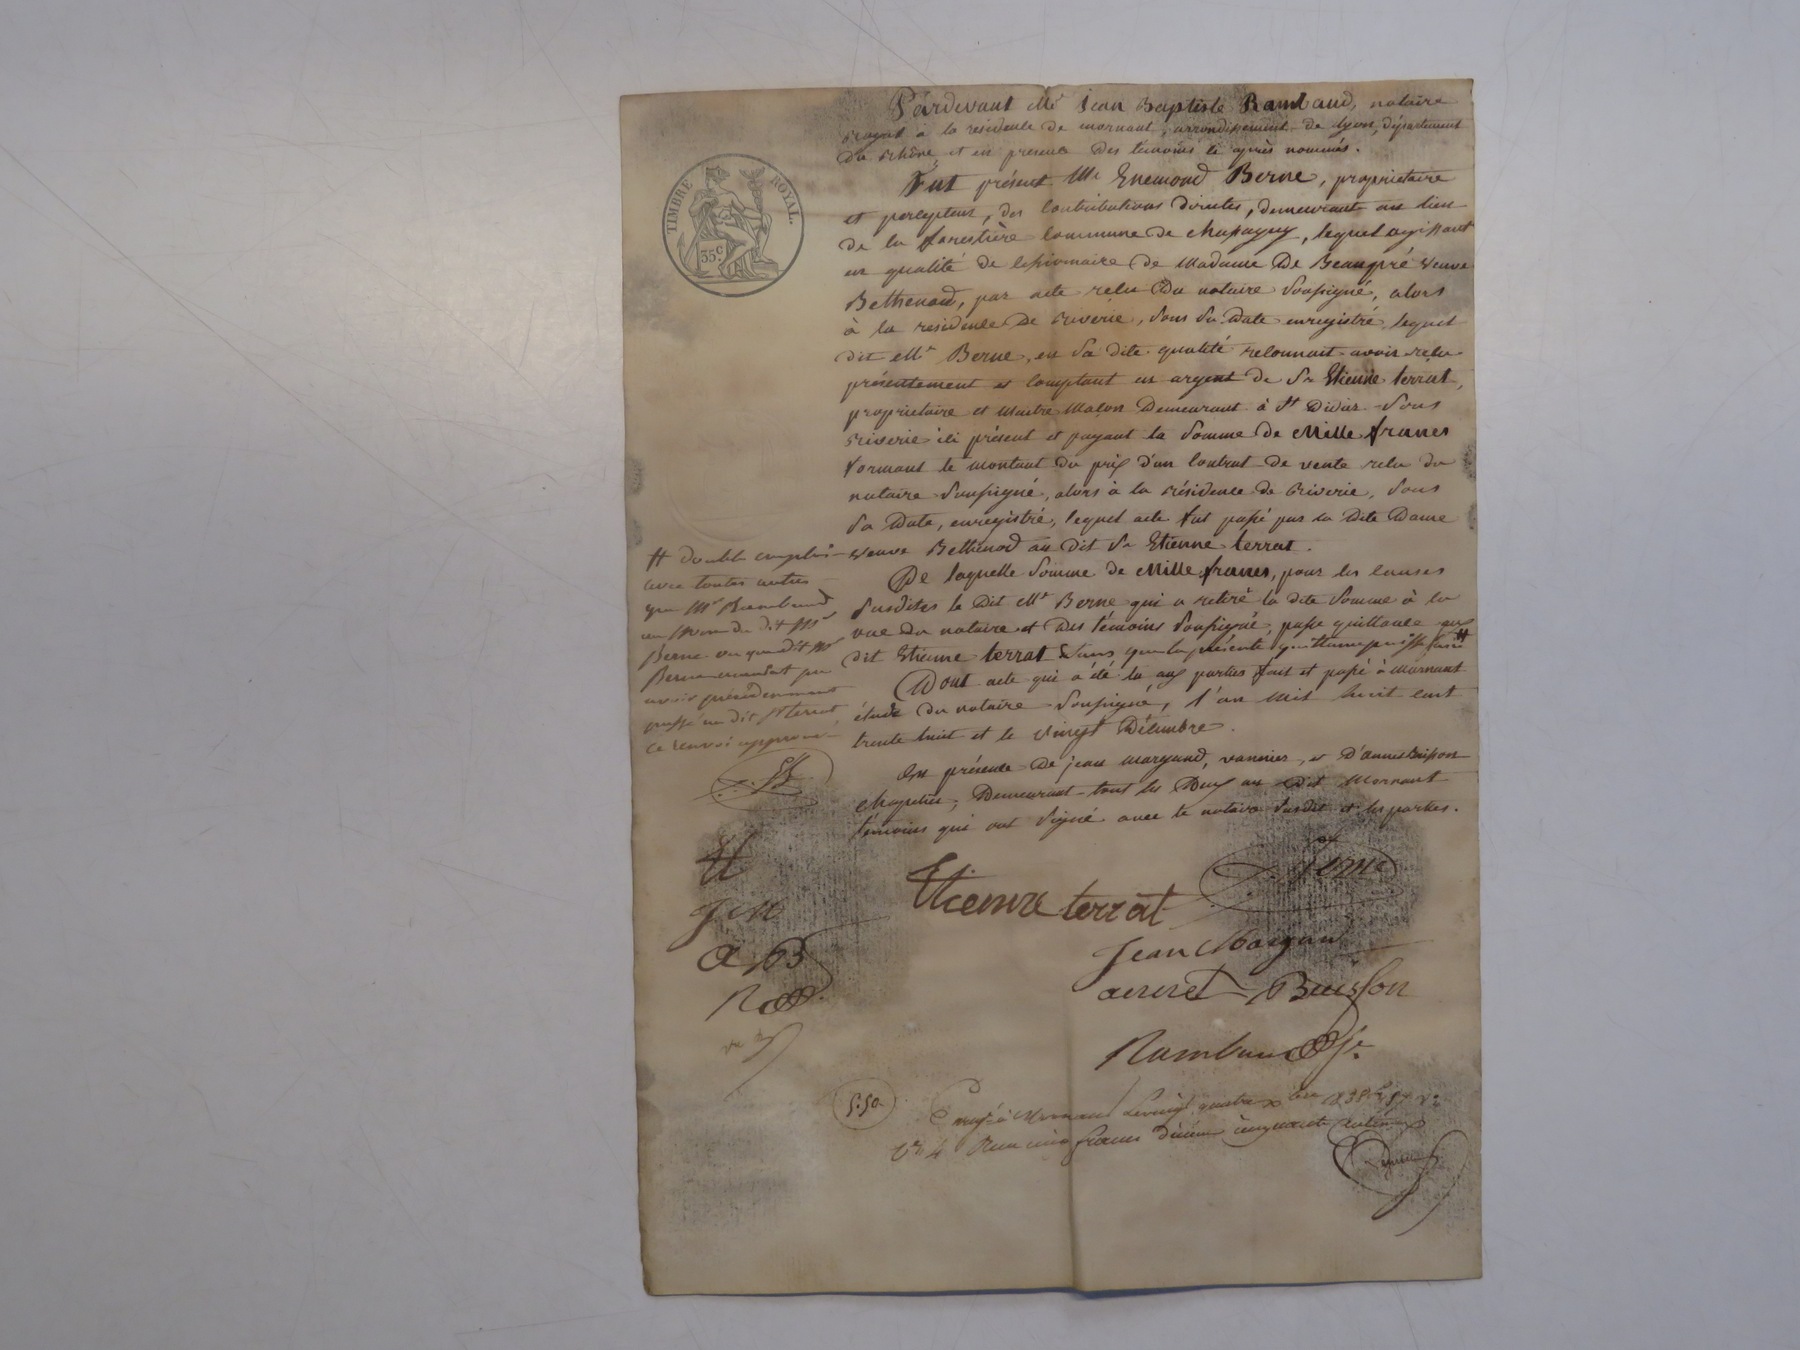 Pardevant Me Jean Baptiste Rambaud, notaire
royal à la residence de mornant, arrondissement de lyon, département
du rhône et en presence des temoins ci après nommés.
TIMBRE ROYAL.
35c
Fut présent Mr Enemond Berne, proprietaire
et percepteur, des Contributions directes, demeurant au lieu
de la forestière Commune de chapagny, lequel agissant
en qualité de cessionnaire de Madame De Beaupré veuve
Bethenod, par acte recu du notaire Soussigné, alors
à la residence de riverie, sous sa Date enregistré, lequel
dit Mr Berne, en sa dite qualité reconnait avoir recu
présentement et comptant en argent de Sr Etienne terrat,
proprietaire et Maitre Maçon Demeurant à St Didier Sous
riverie ici présent et payant la Somme de Mille francs
formant le montant du prix d'un Contrat de vente recu du
notaire Soussigné, alors à la résidence de riverie, sous
sa Date, enregistré, lequel acte fut passé par la dite Dame
veuve Bethenod au dit Sr Etienne terrat.
De laquelle Somme de Mille francs, pour les causes
susdites le dit Mr Berne qui a retiré la dite Somme à la
vue du notaire et des témoins Soussigné, passe quittance au
dit Etienne terrat Sans que la présente quittance puisse faire #
Dont acte qui a été lu aux parties fait et passé à Mornant
étude du notaire Soussigné, l'an mil huit cent
trente huit et le vingt Décembre.
# double emploi
avec toutes autres
que Mr Rambaud
au nom du dit Mr
Berne ou que dit Mr
Berne auroit pu
avoir précédemment
passé au dit Sr terrat
ce renvoi approuvé
En présence de jean margand, vannier, et D'annet Buisson
Chapelier, Demeurant tous les Deux au dit Mornant
témoins qui ont signé avec le notaire susdit et les parties.
Et
JM
A B
R
Etienne terrat
Berne
Jean Margand
annet Buisson
Rambaud
5.50
Enregé à Mornant le vingt quatre Xbre 1838
Recu cinq francs décime cinquante centimes